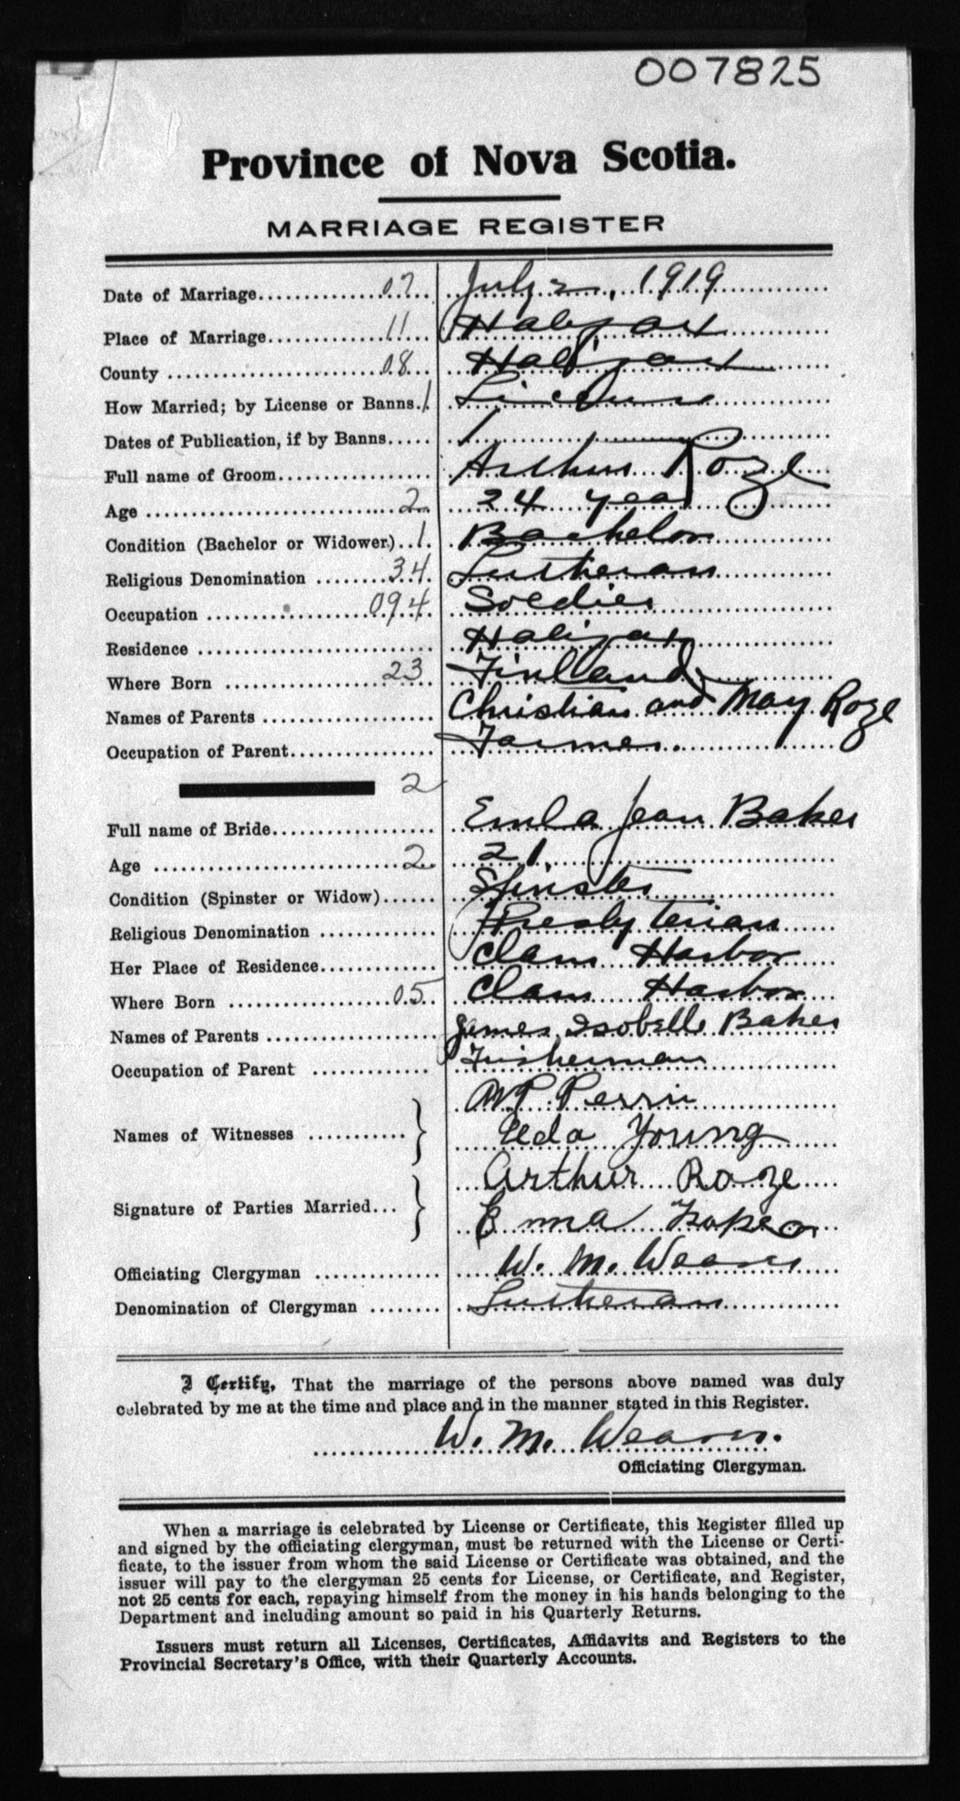 007825
Province of Nova Scotia.
MARRIAGE REGISTER
Date of Marriage 07 July 2, 1919
Place of Marriage 11 Halifax
County 08 Halifax
How Married; by License or Banns. 1 License
Dates of Publication, if by Banns
Full name of Groom Arthur Roze
Age 2 24 years
Condition (Bachelor or Widower) 1 Bachelor
Religious Denomination 34 Lutheran
Occupation 094 Soldier
Residence Halifax
Where Born 23 Finland
Names of Parents Christian and May Roze
Occupation of Parent Farmer.
2
Full name of Bride Jean Baker
Age 2 21.
Condition (Spinster or Widow) Spinster
Religious Denomination Presbyterian
Her Place of Residence Clam Harbor
Where Born 05 Clam Harbor
Names of Parents James, Isobelle Baker
Occupation of Parent Fisherman
Names of Witnesses } Perrin
Young
Signature of Parties Married } Arthur Roze
Officiating Clergyman W. M. Weaver
Denomination of Clergyman Lutheran
I Certify, That the marriage of the persons above named was duly
celebrated by me at the time and place and in the manner stated in this Register.
W. M. Weaver.
Officiating Clergyman.
When a marriage is celebrated by License or Certificate, this Register filled up
and signed by the officiating clergyman, must be returned with the License or Certi-
ficate, to the issuer from whom the said License or Certificate was obtained, and the
issuer will pay to the clergyman 25 cents for License, or Certificate, and Register,
not 25 cents for each, repaying himself from the money in his hands belonging to the
Department and including amount so paid in his Quarterly Returns.
Issuers must return all Licenses, Certificates, Affidavits and Registers to the
Provincial Secretary's Office, with their Quarterly Accounts.